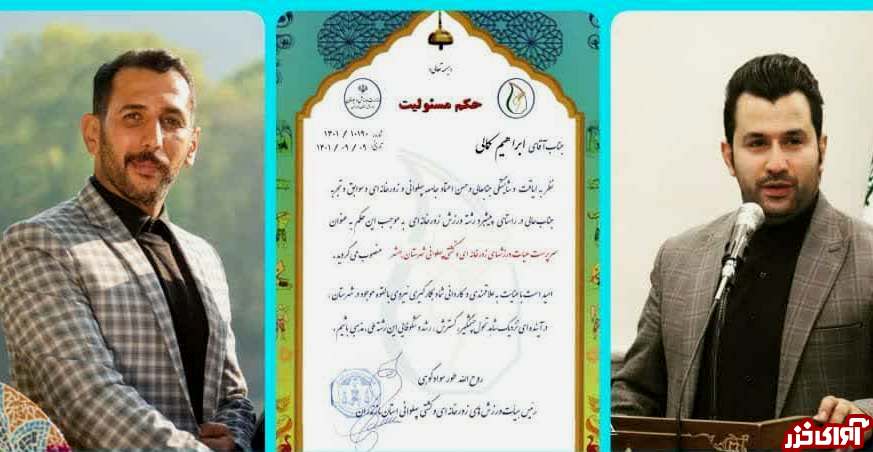 بسمه تعالی
حکم مسئولیت
شماره: ۱۰۱۹۰ / ۱۴۰۱
تاریخ: ۰۹ / ۰۹ / ۱۴۰۱
جناب آقای ابراهیم کمالی
نظر به لیاقت و شایستگی جنابعالی و حسن اعتماد جامعه پهلوانی و زورخانه ای و سوابق و تجربه
جنابعالی در راستای پیشبرد رشته ورزش زورخانه ای به موجب این حکم به عنوان
سرپرست هیات ورزشهای زورخانه ای و کشتی پهلوانی شهرستان بهشهر منصوب می گردید.
امید است با عنایت به علاقمندی و کاردانی شما و بکارگیری نیروی بالقوه موجود در شهرستان،
در آینده ای نزدیک شاهد تحول چشمگیر، گسترش، رشد و شکوفایی این رشته ملی، مذهبی باشیم.
روح الله طور سوادکوهی
رئیس هیأت ورزش های زورخانه ای و کشتی پهلوانی استان مازندران
آوای خزر